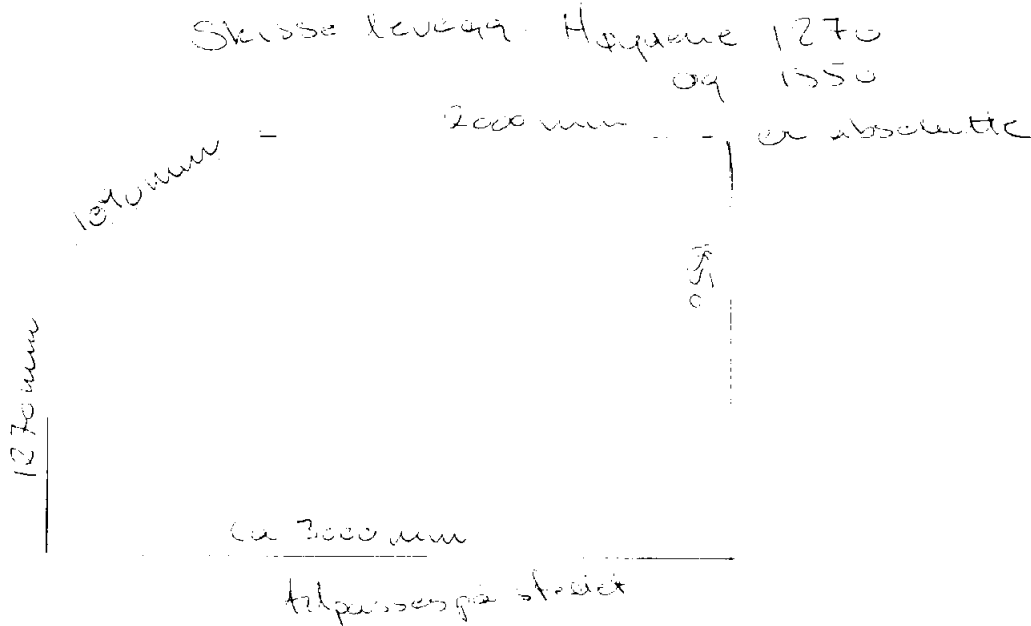 Skisse levegg. Høydene 1270
og 1550
2000 mm er absolutte
1040 mm
1550
1270 mm
ca 3000 mm
tilpasses på stedet